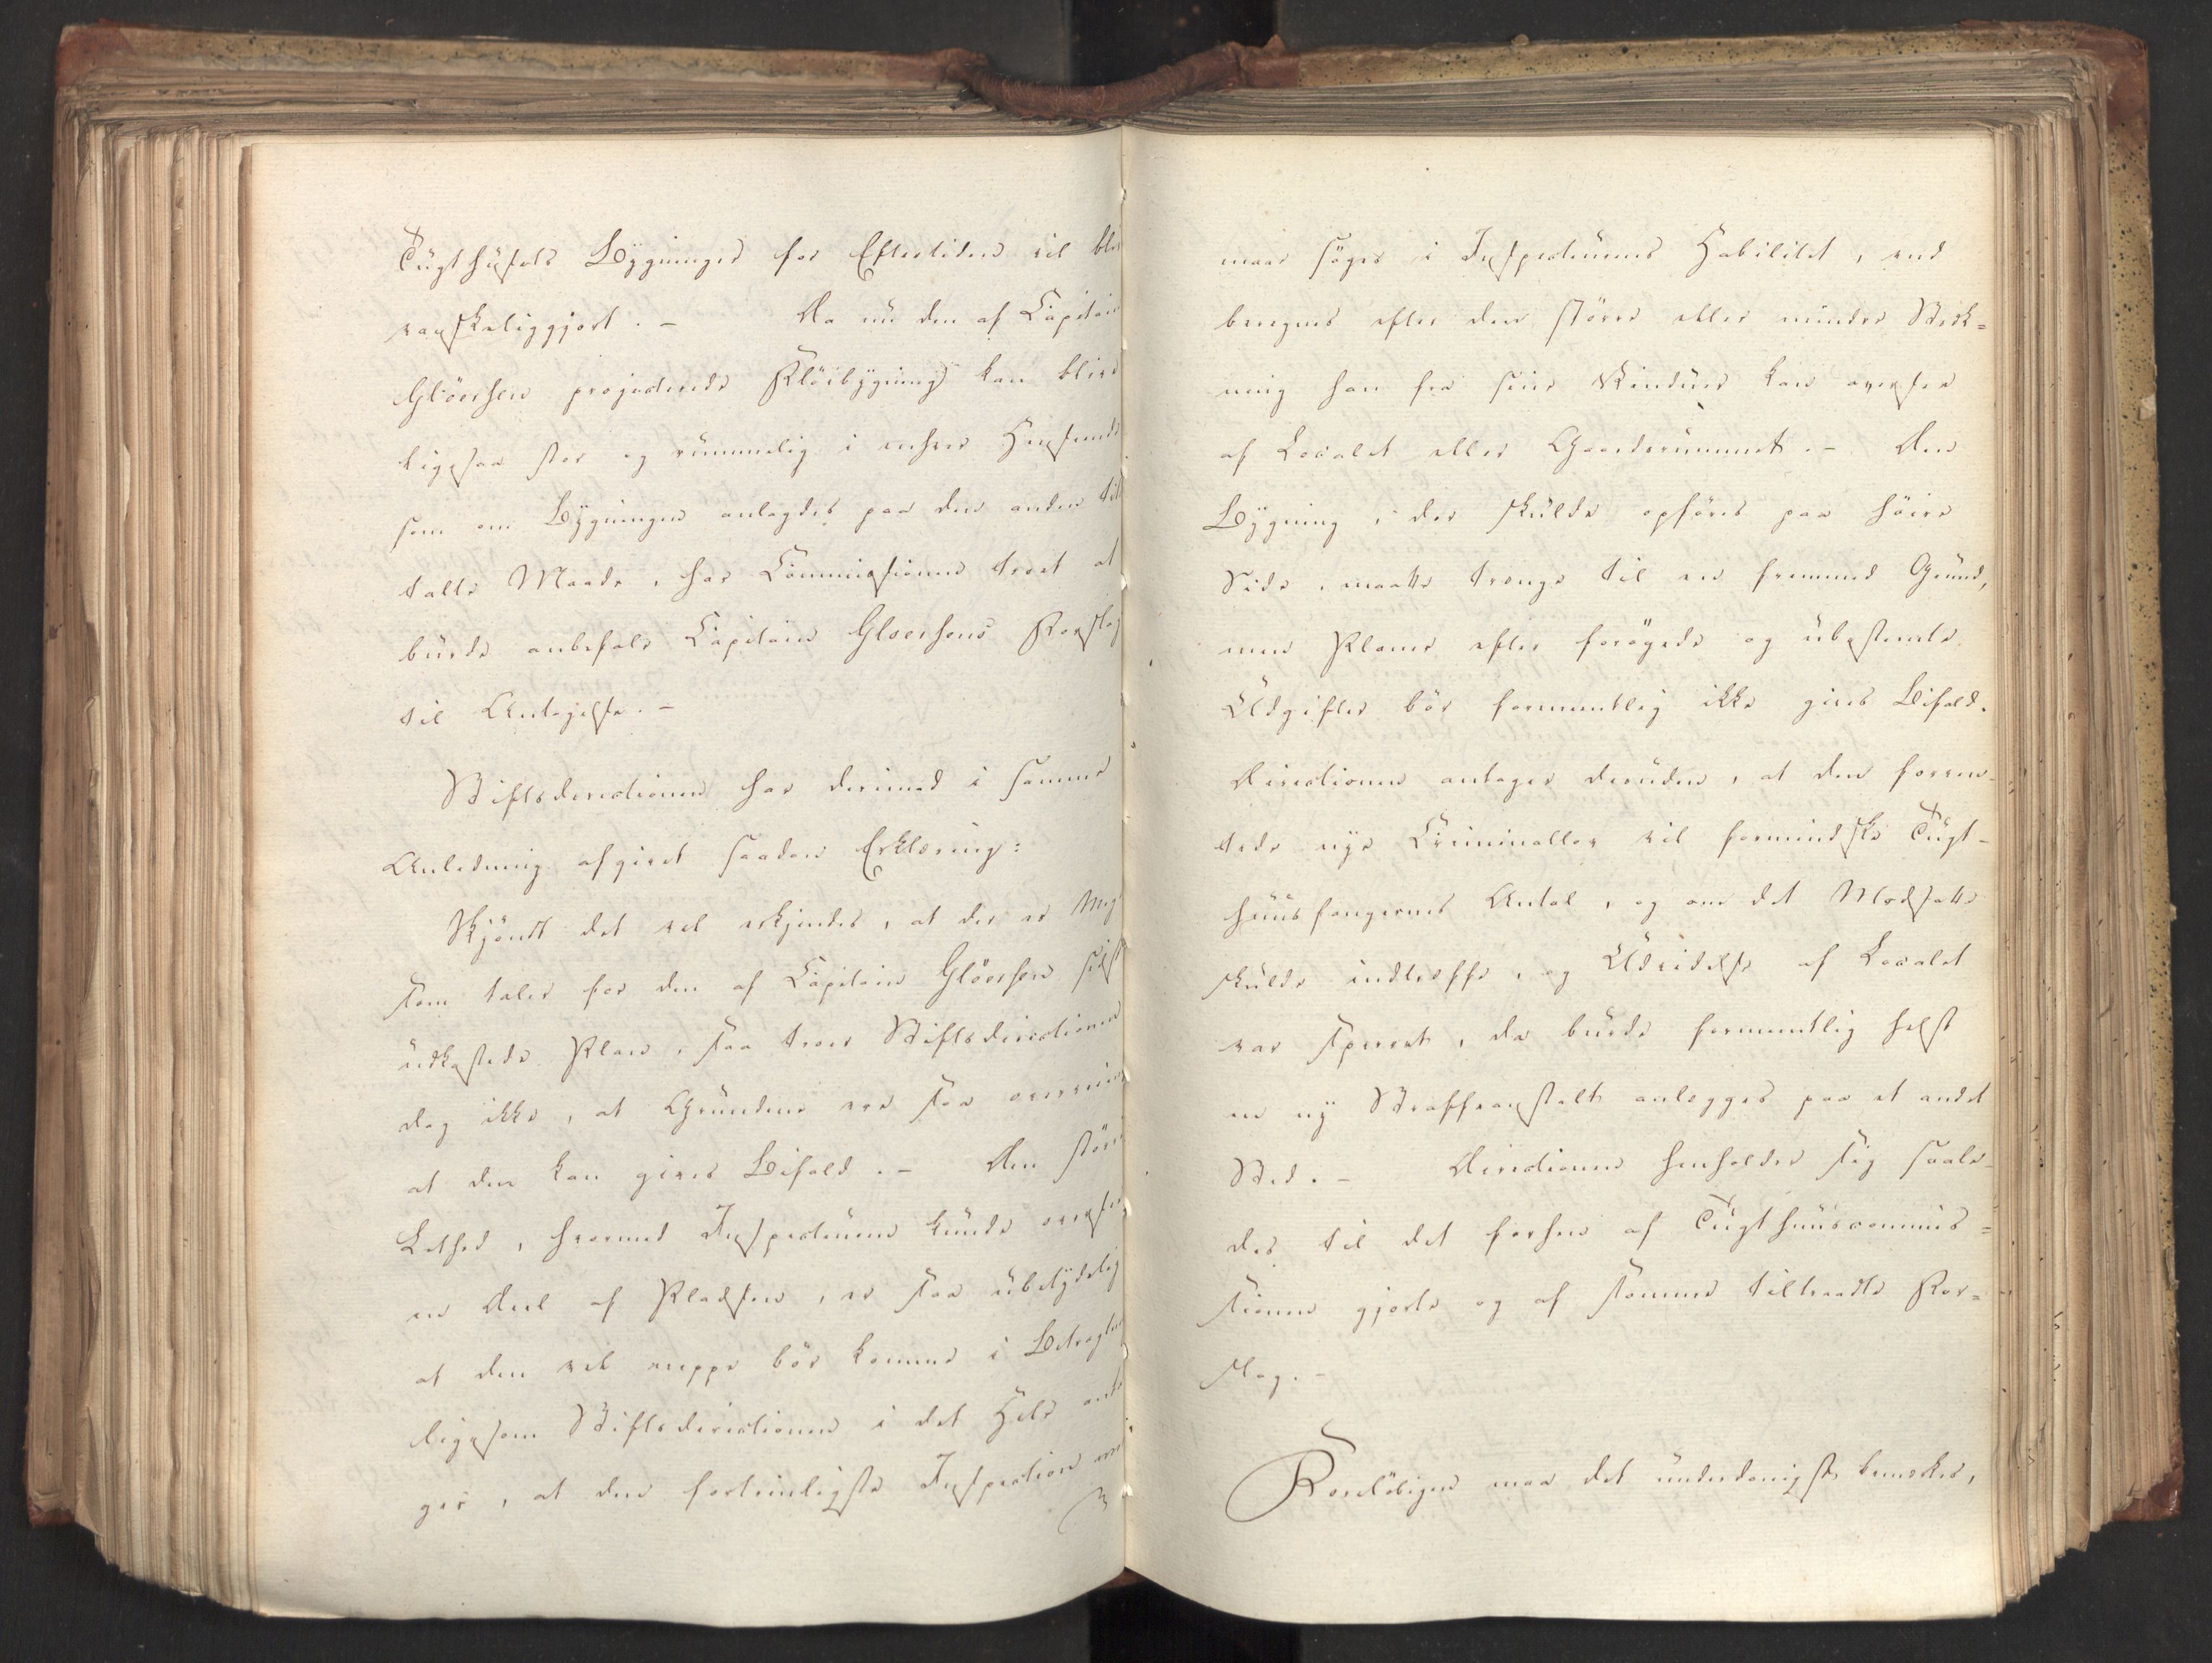 Tugthusets Bygninger for Eftertiden vil bli
vanskeliggjort. - Da nu den af Capitain
Glöersen projecterede Flöibygning kan blive
ligesaa stor og rummelig i enhver Henseende
som om Bygningen anlagdes paa den anden til
talte Maade, har Commissionen troet at
burde anbefale Capitain Gloersens Forslag
til Antagelse. -
Stiftsdirectionen har derimod i samme
Anledning afgivet saadan Erklæring:
Skjöndt det vel erkjendes, at der er Meget
som taler for den af Capitain Glöersen sidst
udkastede Plan, saa troer Stiftsdirectionen
dog ikke, at Grundene ere saa overveiende
at den kan gives Bifald. - Den större
Lethed, hvormed Inspecteuren kunde oversee
en Deel af Pladsen, er saa ubetydelig
at den vel neppe bör komme i Betragtning
ligesom Stiftsdirectionen i det Hele anta
ger, at den fortrinligste Inspection mere
maae söges i Inspecteurens Habilitet, end
beregnes efter den större eller mindre Stræk=
ning han fra sine Vinduer kan oversee
af Localet eller Gaardsrummet. - Den
Bygning, der skulde opföres paa höire
Side, maatte trænge til en fremmed Grund,
men Planer efter forögede og ubestemte
Udgifter bör formeentlig ikke gives Bifald.
Directionen antager desuden, at den forven-
tede nye Criminallov vil formindske Tugt-
huusfangernes Antal, og om det Modsatte
skulde indtræffe, og Udvidelse af Localet
var sperret, da burde formeentlig helst
en ny Straffeanstalt anlægges paa et andet
Sted. - Directionen henholder sig saale-
des til det forhen af Tugthuuscommis=
sionen gjorte og af samme tiltraadte For=
slag. -
Foreløbigen maa det underdanigst bemærkes,